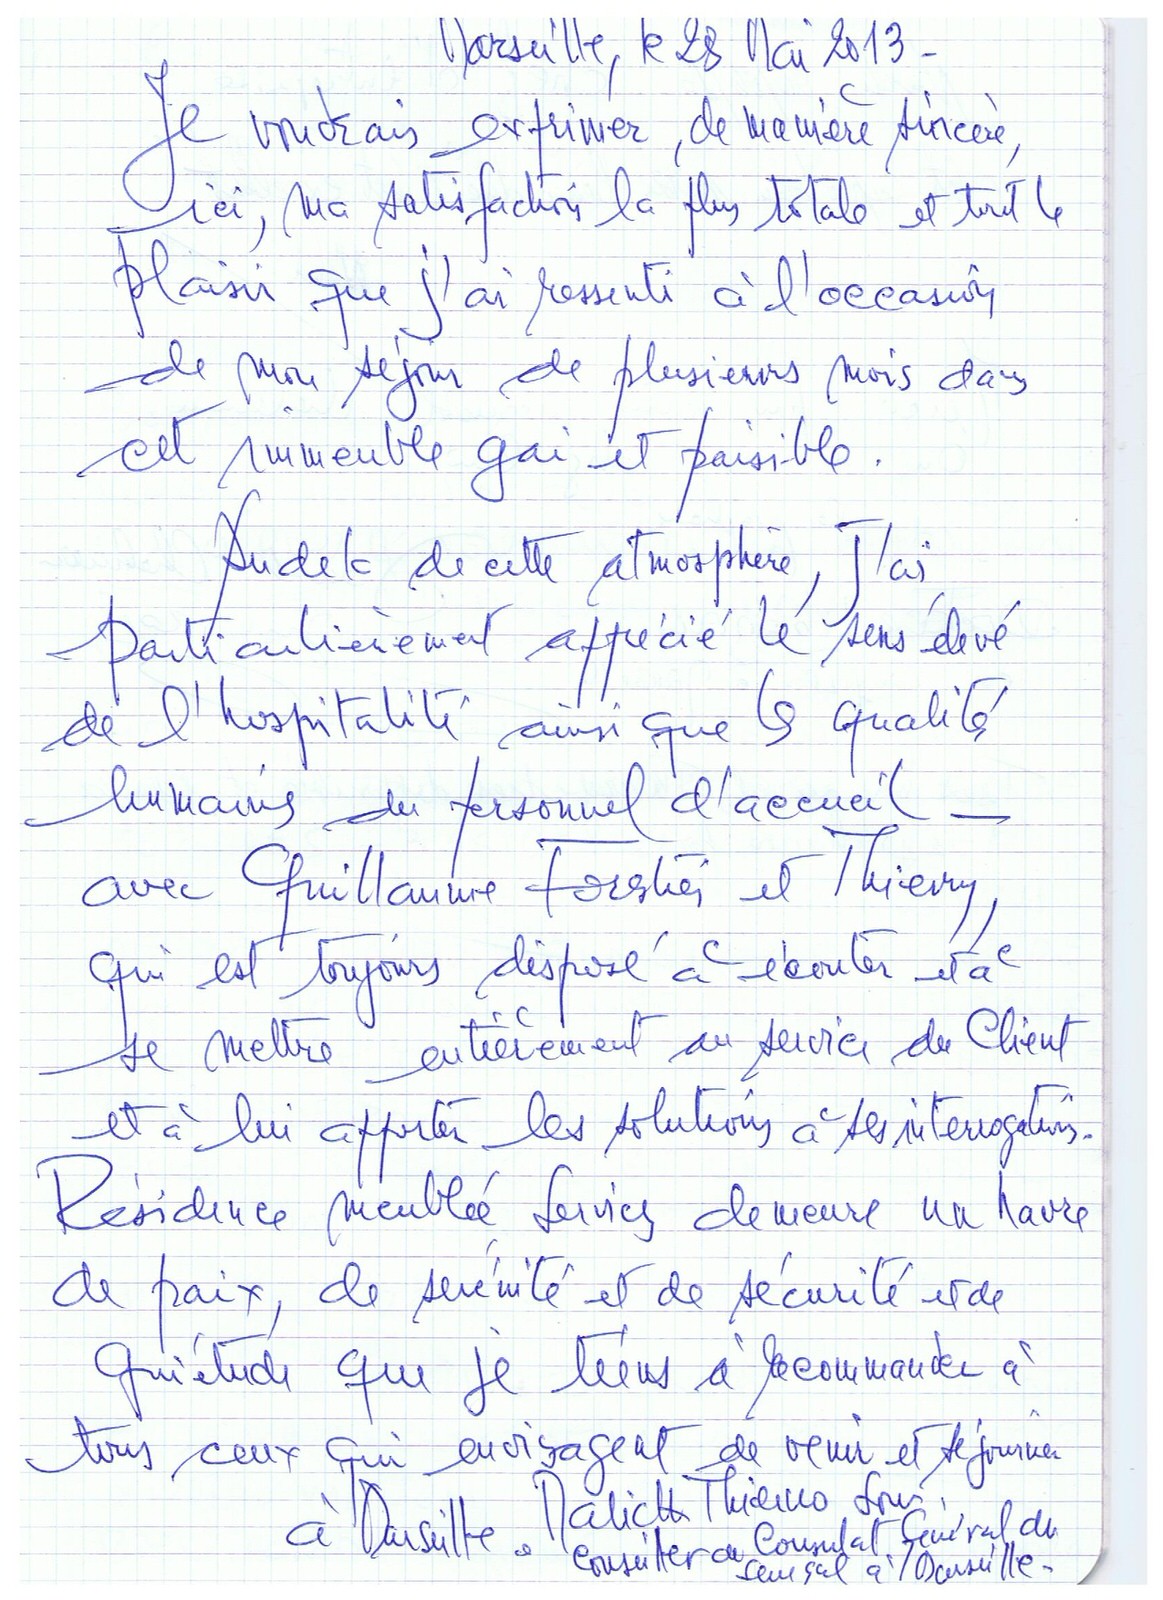 Marseille, le 28 Mai 2013 -
Je voudrais exprimer, de manière sincère,
ici, ma satisfaction la plus totale et tout le
plaisir que j'ai ressenti à l'occasion
de mon séjour de plusieurs mois dans
cet immeuble gai et paisible.
Audelà de cette atmosphère, J'ai
particulièrement apprécié le sens élevé
de l'hospitalité ainsi que les qualités
humaines du personnel d'accueil —
avec Guillaume et Thierry,
qui est toujours disposé à écouter et à
se mettre entièrement au service du Client
et à lui apporter les solutions à ses interrogations.
Résidence meublée Services demeure un havre
de paix, de sérénité et de sécurité et de
quiétude que je tiens à recommander à
tous ceux qui envisagent de venir et séjourner
à Marseille. Thierno
Conseiller au Consulat Général du
Sénégal à Marseille -